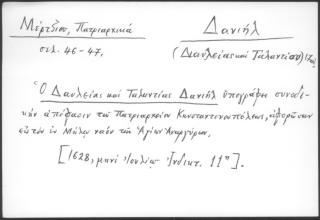 Μέρτζιου, Πατριαρχικά
Δανιήλ
σελ. 46-47,
(Δαυλείας καὶ Ταλαντίου) 17ος
Ὁ Δαυλείας καὶ Ταλαντίας Δανιήλ ὑπογράφει συνοδι-
κήν ἀπόφασιν τοῦ Πατριαρχείου Κωνσταντινουπόλεως, ἀφορῶσαν
εἰς τὸν ἐν Μήλῳ ναόν τῶν Ἁγίων Ἀναργύρων,
[1628, μηνί Ἰουλίῳ Ἰνδικτ. 11η].